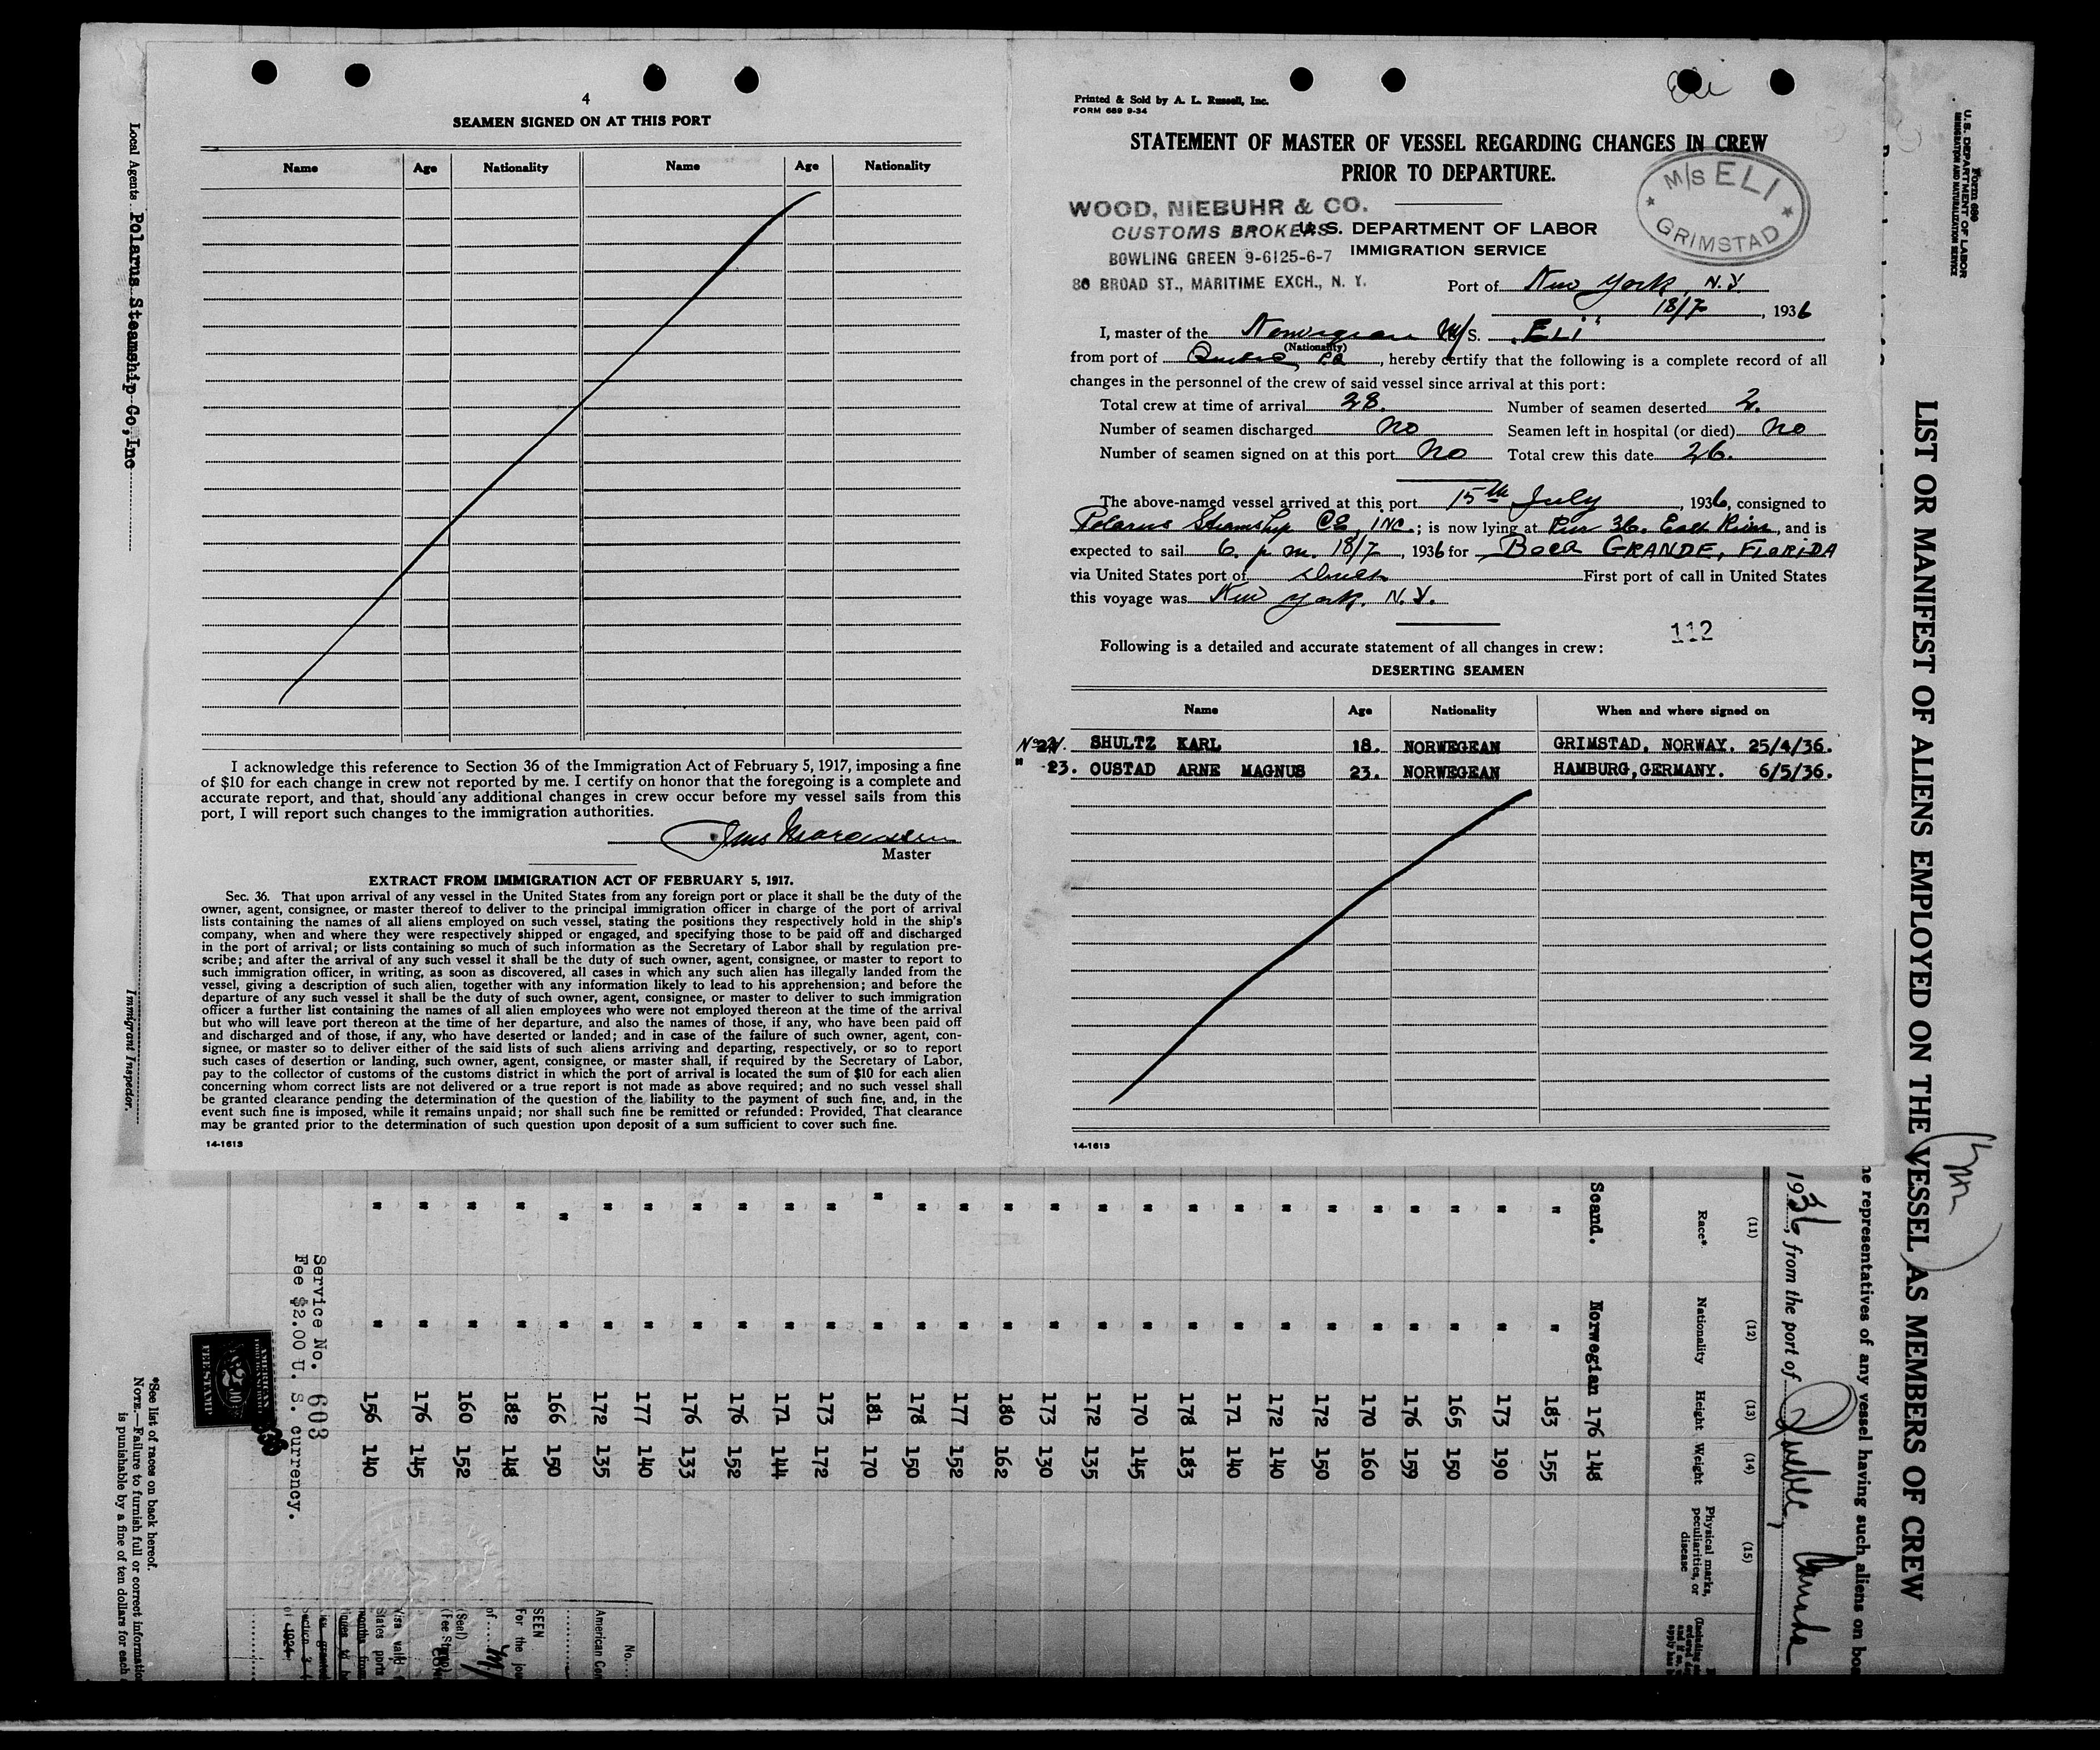 4
SEAMEN SIGNED ON AT THIS PORT
Name Age Nationality Name Age Nationality
I acknowledge this reference to Section 36 of the Immigration Act of February 5, 1917, imposing a fine
of $10 for each change in crew not reported by me. I certify on honor that the foregoing is a complete and
accurate report, and that, should any additional changes in crew occur before my vessel sails from this
port, I will report such changes to the immigration authorities.
Master
EXTRACT FROM IMMIGRATION ACT OF FEBRUARY 5, 1917.
Sec. 36. That upon arrival of any vessel in the United States from any foreign port or place it shall be the duty of the
owner, agent, consignee, or master thereof to deliver to the principal immigration officer in charge of the port of arrival
lists containing the names of all aliens employed on such vessel, stating the positions they respectively hold in the ship's
company, when and where they were respectively shipped or engaged, and specifying those to be paid off and discharged
in the port of arrival; or lists containing so much of such information as the Secretary of Labor shall by regulation pre-
scribe; and after the arrival of any such vessel it shall be the duty of such owner, agent, consignee, or master to report to
such immigration officer, in writing, as soon as discovered, all cases in which any such alien has illegally landed from the
vessel, giving a description of such alien, together with any information likely to lead to his apprehension; and before the
departure of any such vessel it shall be the duty of such owner, agent, consignee, or master to deliver to such immigration
officer a further list containing the names of all alien employees who were not employed thereon at the time of the arrival
but who will leave port thereon at the time of her departure, and also the names of those, if any, who have been paid off
and discharged and of those, if any, who have deserted or landed; and in case of the failure of such owner, agent, con-
signee, or master so to deliver either of the said lists of such aliens arriving and departing, respectively, or so to report
such cases of desertion or landing, such owner, agent, consignee, or master shall, if required by the Secretary of Labor,
pay to the collector of customs of the customs district in which the port of arrival is located the sum of $10 for each alien
concerning whom correct lists are not delivered or a true report is not made as above required; and no such vessel shall
be granted clearance pending the determination of the question of the liability to the payment of such fine, and, in the
event such fine is imposed, while it remains unpaid; nor shall such fine be remitted or refunded: Provided, That clearance
may be granted prior to the determination of such question upon deposit of a sum sufficient to cover such fine.
14-1613
Eli
Printed & Sold by A. L. Russell, Inc.
FORM 689 9-34
STATEMENT OF MASTER OF VESSEL REGARDING CHANGES IN CREW
PRIOR TO DEPARTURE.
M/S ELI
GRIMSTAD
WOOD, NIEBUHR & CO.
CUSTOMS BROKERS
BOWLING GREEN 9-6125-6-7
80 BROAD ST., MARITIME EXCH., N. Y.
U. S. DEPARTMENT OF LABOR
IMMIGRATION SERVICE
Port of New York, N.Y.
18/7, 1936
I, master of the Norwegian M/S. "ELI"
(Nationality)
from port of Quebec PQ, hereby certify that the following is a complete record of all
changes in the personnel of the crew of said vessel since arrival at this port:
Total crew at time of arrival 28. Number of seamen deserted 2.
Number of seamen discharged no Seamen left in hospital (or died) no
Number of seamen signed on at this port no Total crew this date 26.
The above-named vessel arrived at this port 15th July, 1936, consigned to
Polarus Steamship Co, INC.; is now lying at Pier 36. East River, and is
expected to sail 6. p.m. 18/7, 1936 for BOCA GRANDE, FLORIDA
via United States port of direct First port of call in United States
this voyage was New York, N.Y.
112
Following is a detailed and accurate statement of all changes in crew:
DESERTING SEAMEN
Name Age Nationality When and where signed on
SHULTZ KARL 18. NORWEGEAN GRIMSTAD, NORWAY. 25/4/36.
" 23. OUSTAD ARNE MAGNUS 23. NORWEGEAN HAMBURG,GERMANY. 6/5/36.
14-1613
Local Agents Polarus Steamship Co,Inc
Immigrant Inspector.
Form 689
U. S. DEPARTMENT OF LABOR
IMMIGRATION AND NATURALIZATION SERVICE
LIST OR MANIFEST OF ALIENS EMPLOYED ON THE VESSEL AS MEMBERS OF CREW
he representatives of any vessel having such aliens on boa
1936, from the port of Quebec, Canada
(11) (12) (13) (14) (15)
Race* Nationality Height Weight Physical marks, peculiarities, or disease
Scand. Norwegian 176 148
" " 183 155
" " 173 190
" " 165 150
" " 176 159
" " 170 160
" " 172 150
" " 172 140
" " 171 140
" " 178 183
" " 170 145
" " 172 135
" " 173 130
" " 180 162
" " 177 152
" " 178 150
" " 181 170
" " 173 172
" " 171 144
" " 176 152
" " 176 133
" " 177 140
" " 172 135
" " 166 150
" " 182 148
" " 160 152
" " 176 145
" " 156 140
Service No. 603
Fee $2.00 U. S. currency.
AMERICAN
$2.00
FEE STAMP
No.
American Con
SEEN
For the jou
of
(Seal)
(Fee Stamp)
Visa valid
States ports
months from
*See list of races on back hereof.
NOTE.—Failure to furnish full or correct informatio
is punishable by a fine of ten dollars for each